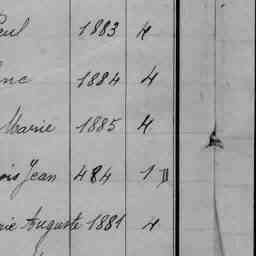 1883 4
1884 4
Marie 1885 4
Jean 484 1
Auguste 1881 4